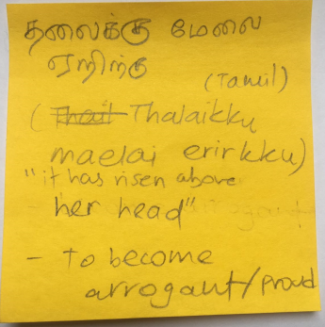 தலைக்கு மேலை
ஏறிற்கு
(Tamil)
(Thalaikku
maelai erirkku)
"it has risen above
her head"
- To become
arrogant/proud